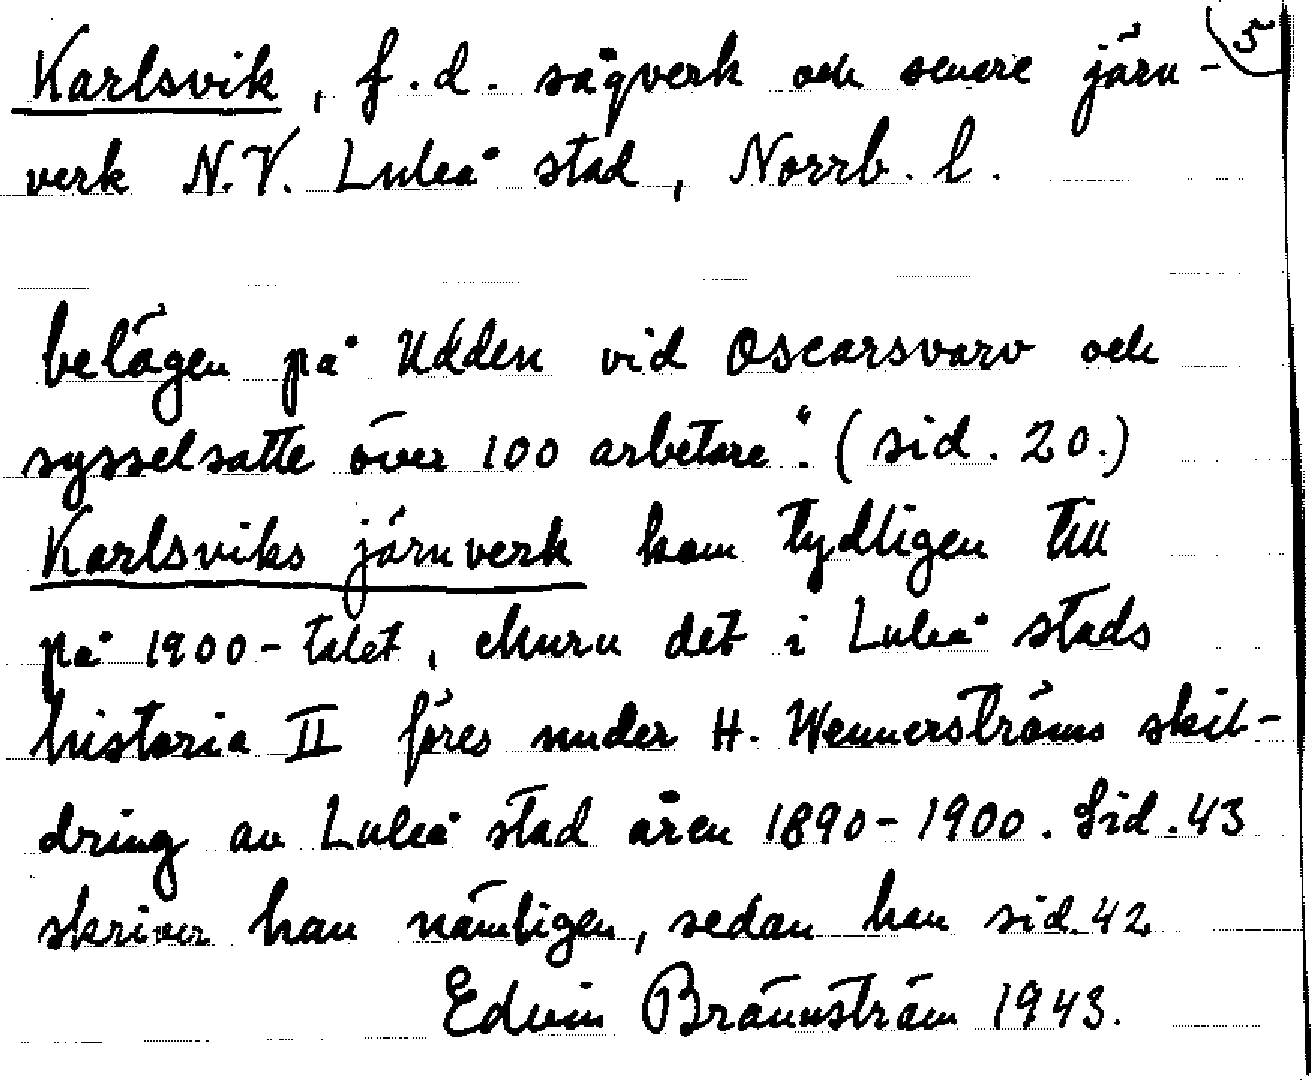 5
Karlsvik, f.d. sågverk och senere järn-
verk N.V. Luleå stad, Norrb. l.
belägen på Udden vid Oscarsvarv och
sysselsatte över 100 arbetare". (sid. 20.)
Karlsviks järnverk kom tydligen till
på 1900-talet, ehuru det i Luleå stads
historia II föres under H. Wennerströms skil-
dring av Luleå stad åren 1890-1900. Sid. 43
skriver han nämligen, sedan han sid. 42
Edvin Brännström 1943.